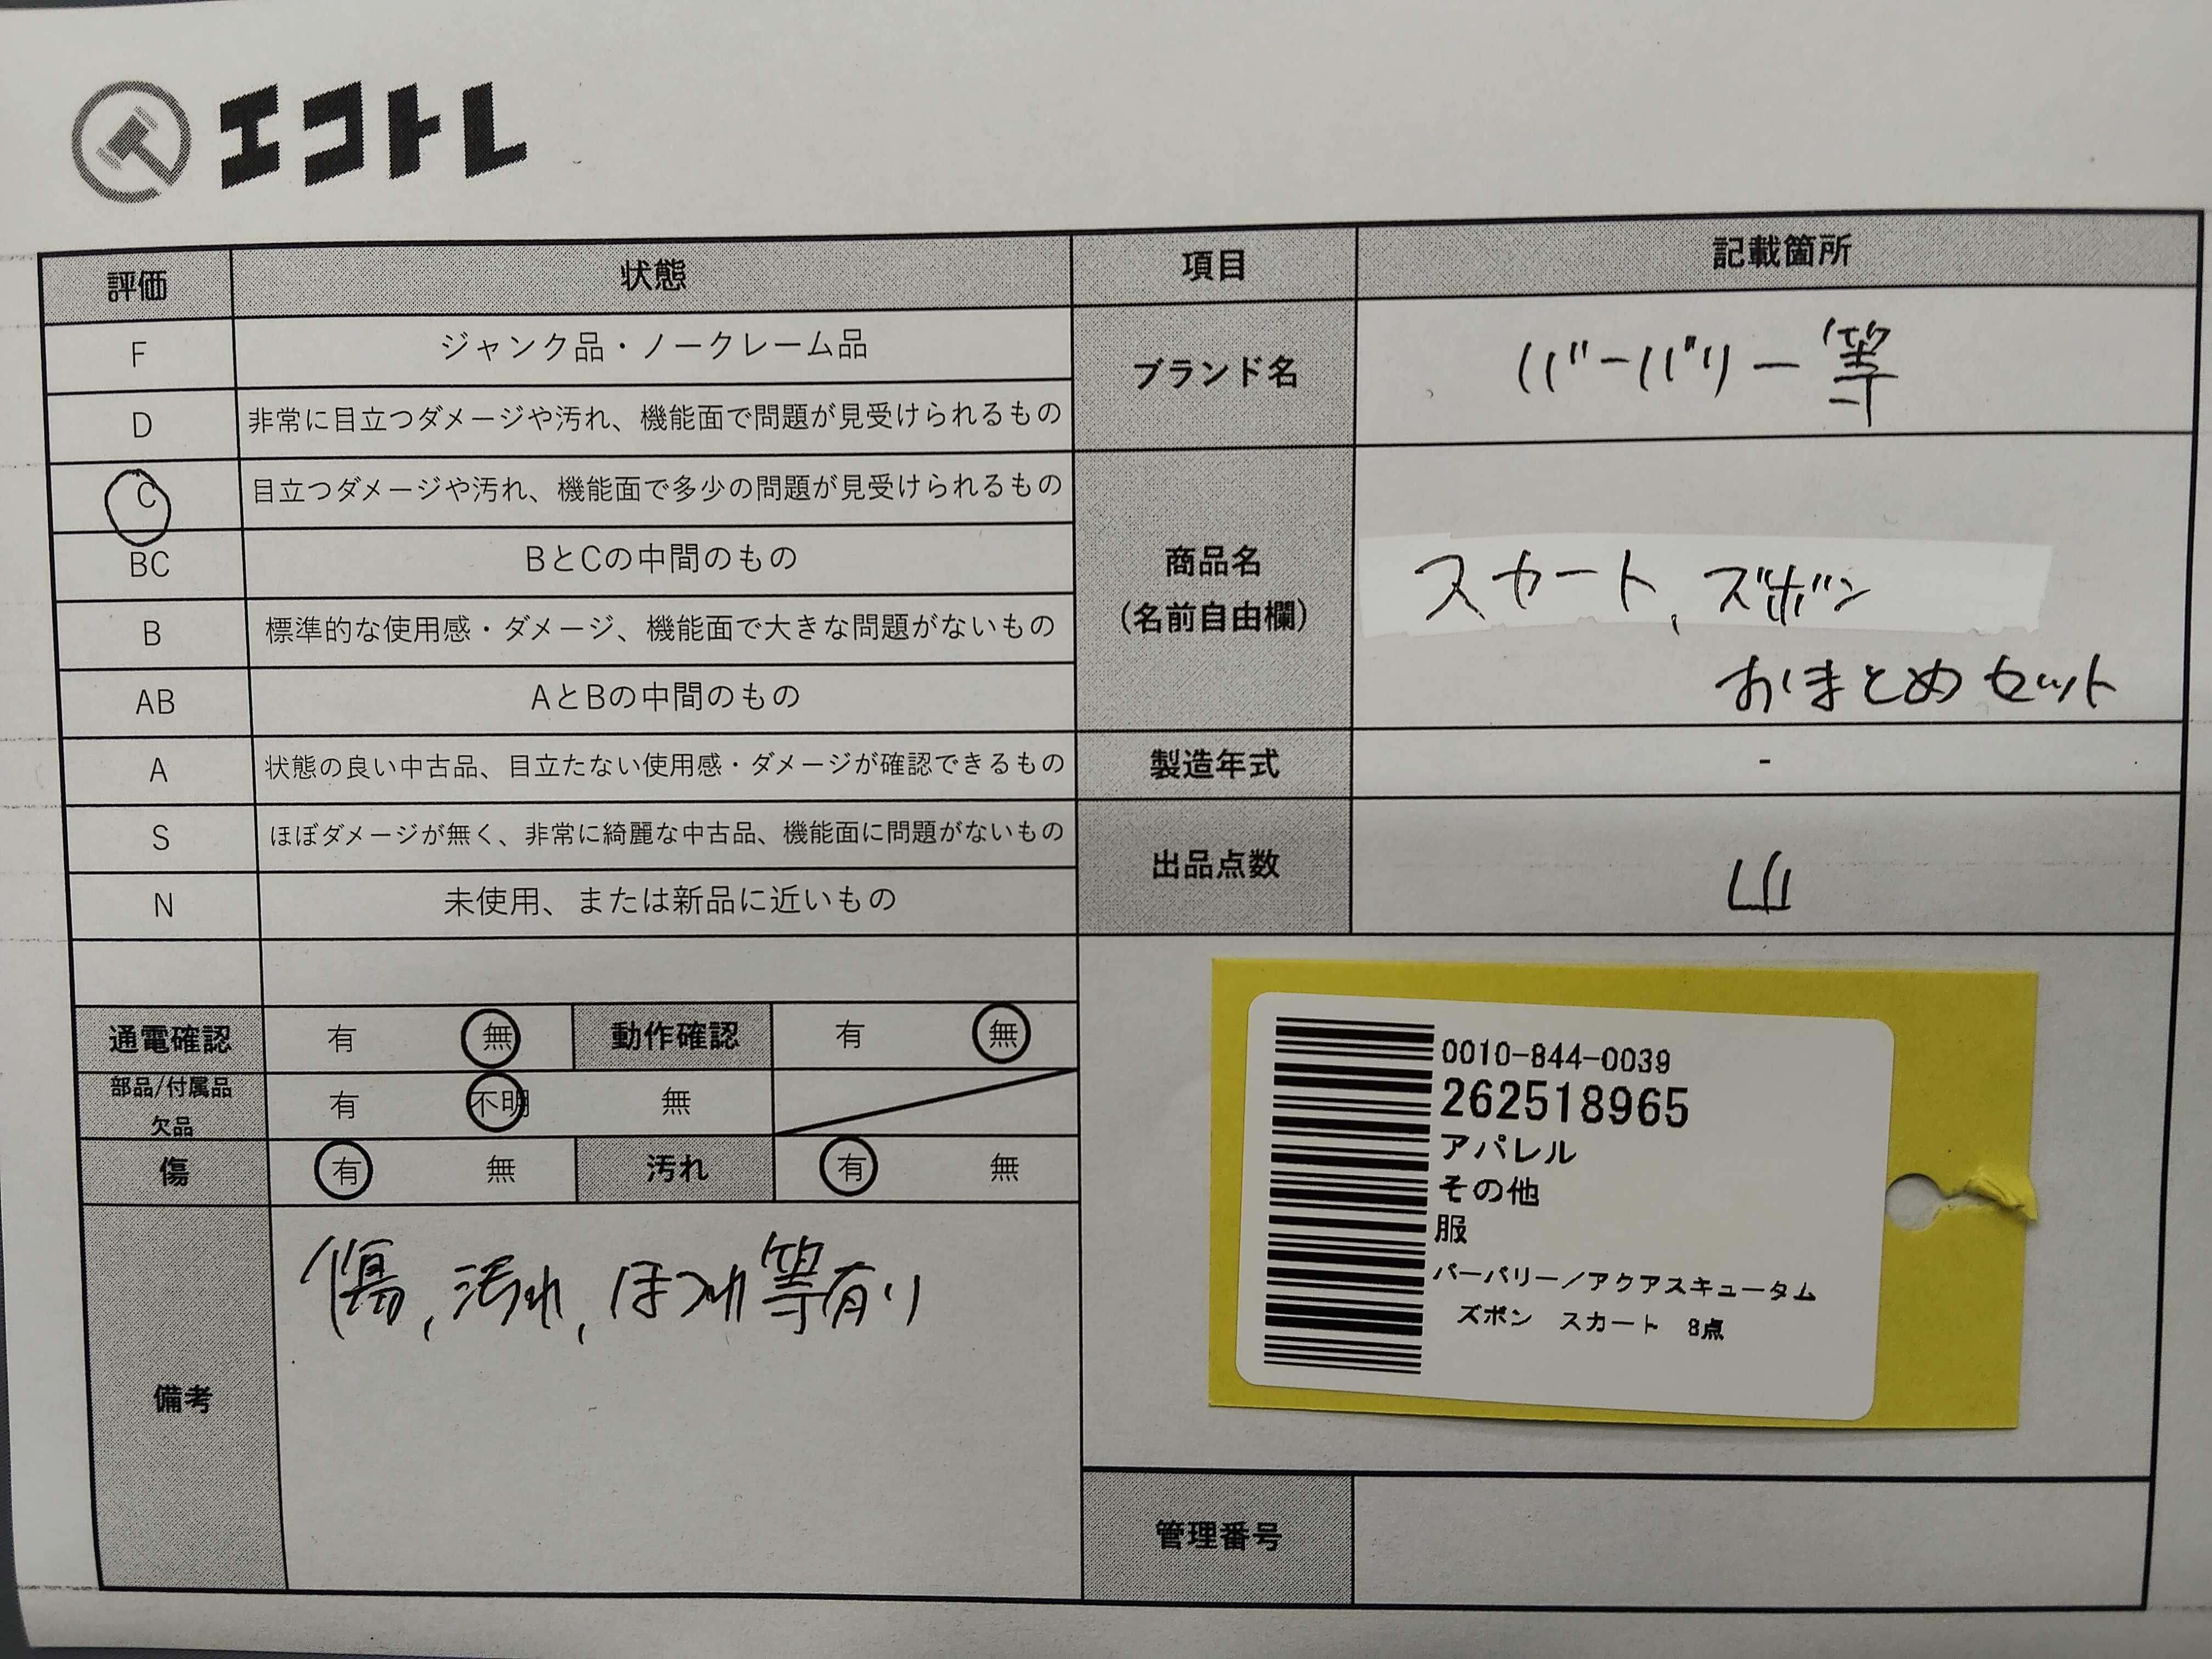 エコトレ
評価 状態 項目 記載箇所
F ジャンク品・ノークレーム品
D 非常に目立つダメージや汚れ、機能面で問題が見受けられるもの
ブランド名 バーバリー等
C 目立つダメージや汚れ、機能面で多少の問題が見受けられるもの
BC BとCの中間のもの
B 標準的な使用感・ダメージ、機能面で大きな問題がないもの
AB AとBの中間のもの
商品名
(名前自由欄)
スカート、ズボン
おまとめセット
A 状態の良い中古品、目立たない使用感・ダメージが確認できるもの
製造年式 -
S ほぼダメージが無く、非常に綺麗な中古品、機能面に問題がないもの
N 未使用、または新品に近いもの
出品点数 山
通電確認 有 無 動作確認 有 無
部品/付属品
欠品
有 不明 無
傷 有 無 汚れ 有 無
備考
傷、汚れ、ほつれ等有り
0010-844-0039
262518965
アパレル
その他
服
バーバリー/アクアスキュータム
ズボン スカート 8点
管理番号